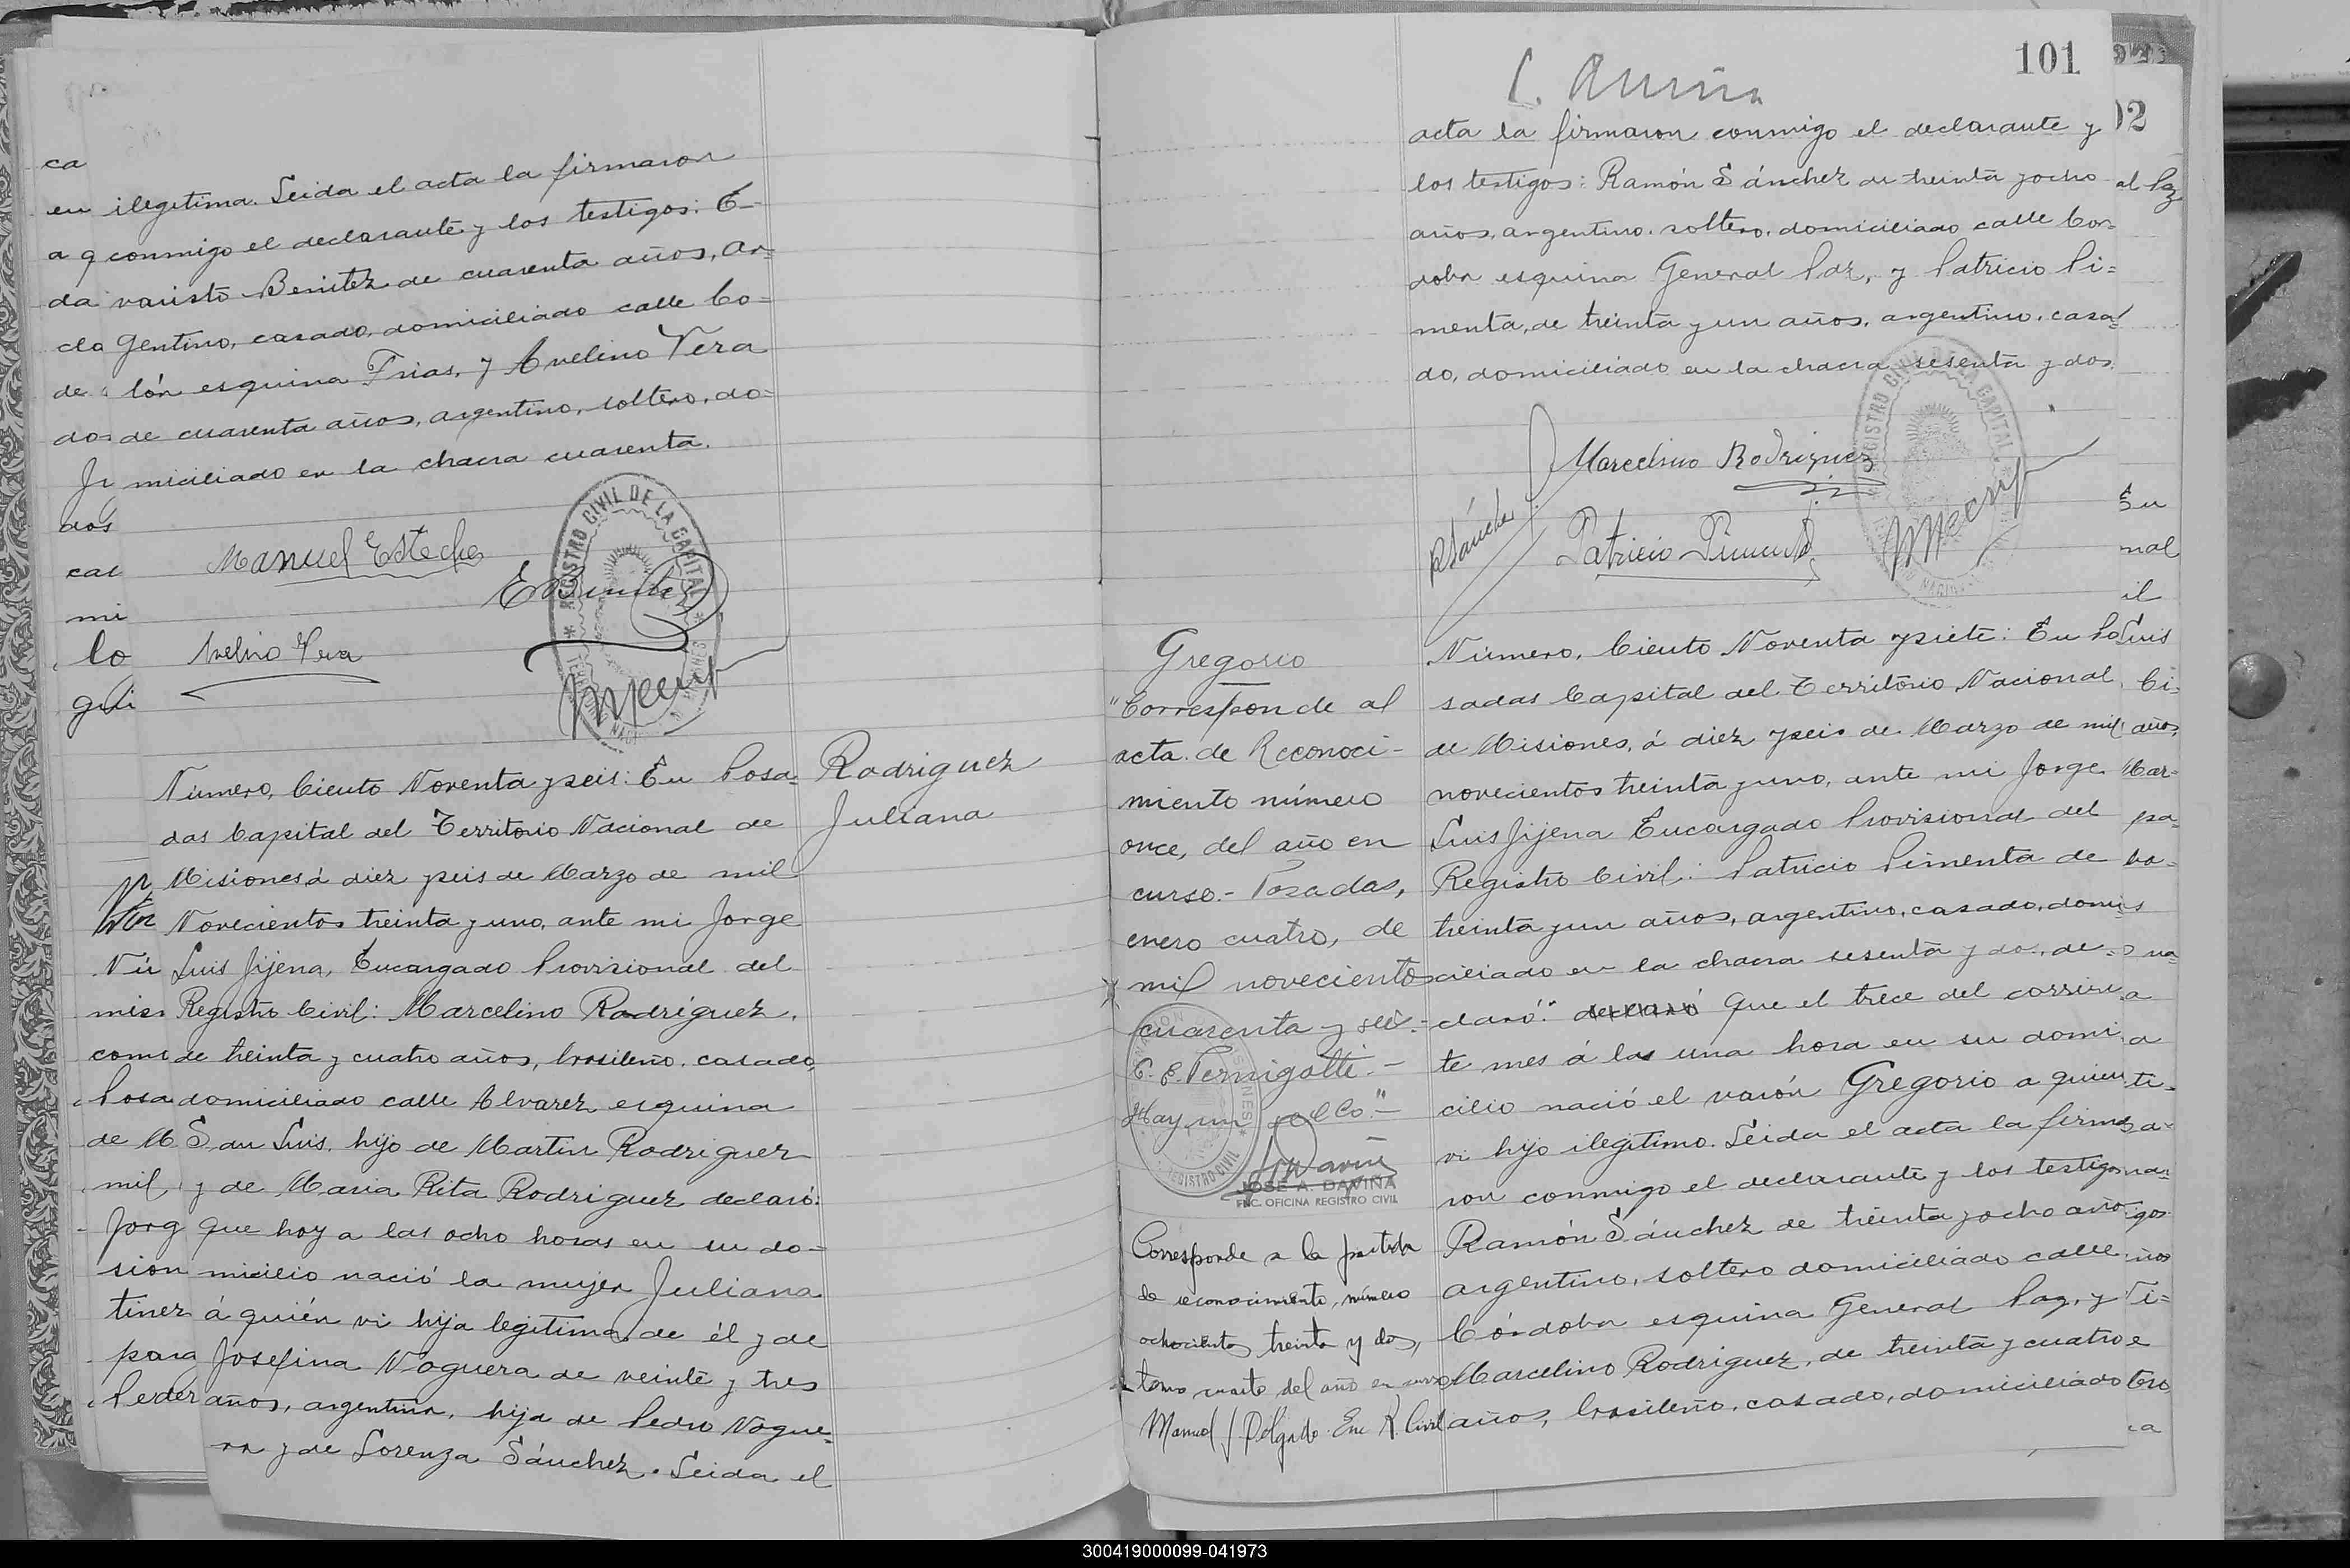 ca
en ilegitima. Leida el acta la firmaron
a q conmigo el declarante y los testigos: E-
da varisto Benitez de cuarenta años, ar=
cla gentino, casado, domiciliado calle Co=
de lón esquina Frias, y Avelino Vera
dos de cuarenta años, argentino, soltero, do=
Ji miciliado en la chacra cuarenta.
dos
cal
mi
lo
Manuel Esteche
E Benitez
Avelino Vera
REGISTRO CIVIL DE LA CAPITAL
Rodriguez
Juliana
Número, Ciento Noventa y seis: En Posa=
das Capital del Territorio Nacional de
Misiones á diez y seis de Marzo de mil
Novecientos treinta y uno, ante mi Jorge
Nú Luis Jijena, Encargado Provisional del
mis Registro Civil: Marcelino Rodríguez,
comi de treinta y cuatro años, brasileño, casado,
Posa domiciliado calle Alvarez esquina
de M San Luis, hijo de Martin Rodriguez
mil, y de Maria Rita Rodriguez declaró:
Jorg que hoy a las ocho horas en su do=
sion micilio nació la mujer Juliana
tinez á quién vi hija legitima de él y de
para Josefina Noguera de veinte y tres
Peder años, argentina, hija de Pedro Nogue=
ra y de Lorenza Sánchez. Leida el
101
acta la firmaron conmigo el declarante y
los testigos: Ramón Sánchez de treinta y ocho
años, argentino, soltero, domiciliado calle Cor=
doba esquina General Paz, y Patricio Pi=
menta, de treinta y un años, argentino, casa=
do, domiciliado en la chacra sesenta y dos.
Marcelino Rodriguez
R Sánchez
Patricio Pimenta
REGISTRO CIVIL DE LA CAPITAL
Gregorio
"Corresponde al
acta de Reconoci-
miento número
once, del año en
curso.- Posadas,
enero cuatro, de
mil novecientos
cuarenta y seis.-
E. E. Pernigotti.-
Hay un sello."-
JOSE A. DAVIÑA
ENC. OFICINA REGISTRO CIVIL
Corresponde a la partida
de reconocimiento, número
ochocientos treinta y dos,
tomo cuarto del año en curso
Manuel J Delgado Enc R. Civil
Número, Ciento Noventa y siete: En Po
sadas Capital del Territorio Nacional
de Misiones, á diez y seis de Marzo de mil
novecientos treinta y uno, ante mi Jorge
Luis Jijena Encargado Provisional del
Registro Civil: Patricio Pimenta de
treinta y un años, argentino, casado, domi
ciliado en la chacra sesenta y dos, de=
claró: declaró que el trece del corrien
te mes á las una hora en su domi
cilio nació el varón Gregorio a quien
vi hijo ilegitimo. Leida el acta la firma
ron conmigo el declarante y los testigos
Ramón Sánchez de treinta y ocho años
argentino, soltero domiciliado calle
Córdoba esquina General Paz, y
Marcelino Rodriguez, de treinta y cuatro
años, brasileño, casado, domiciliado
300419000099-041973